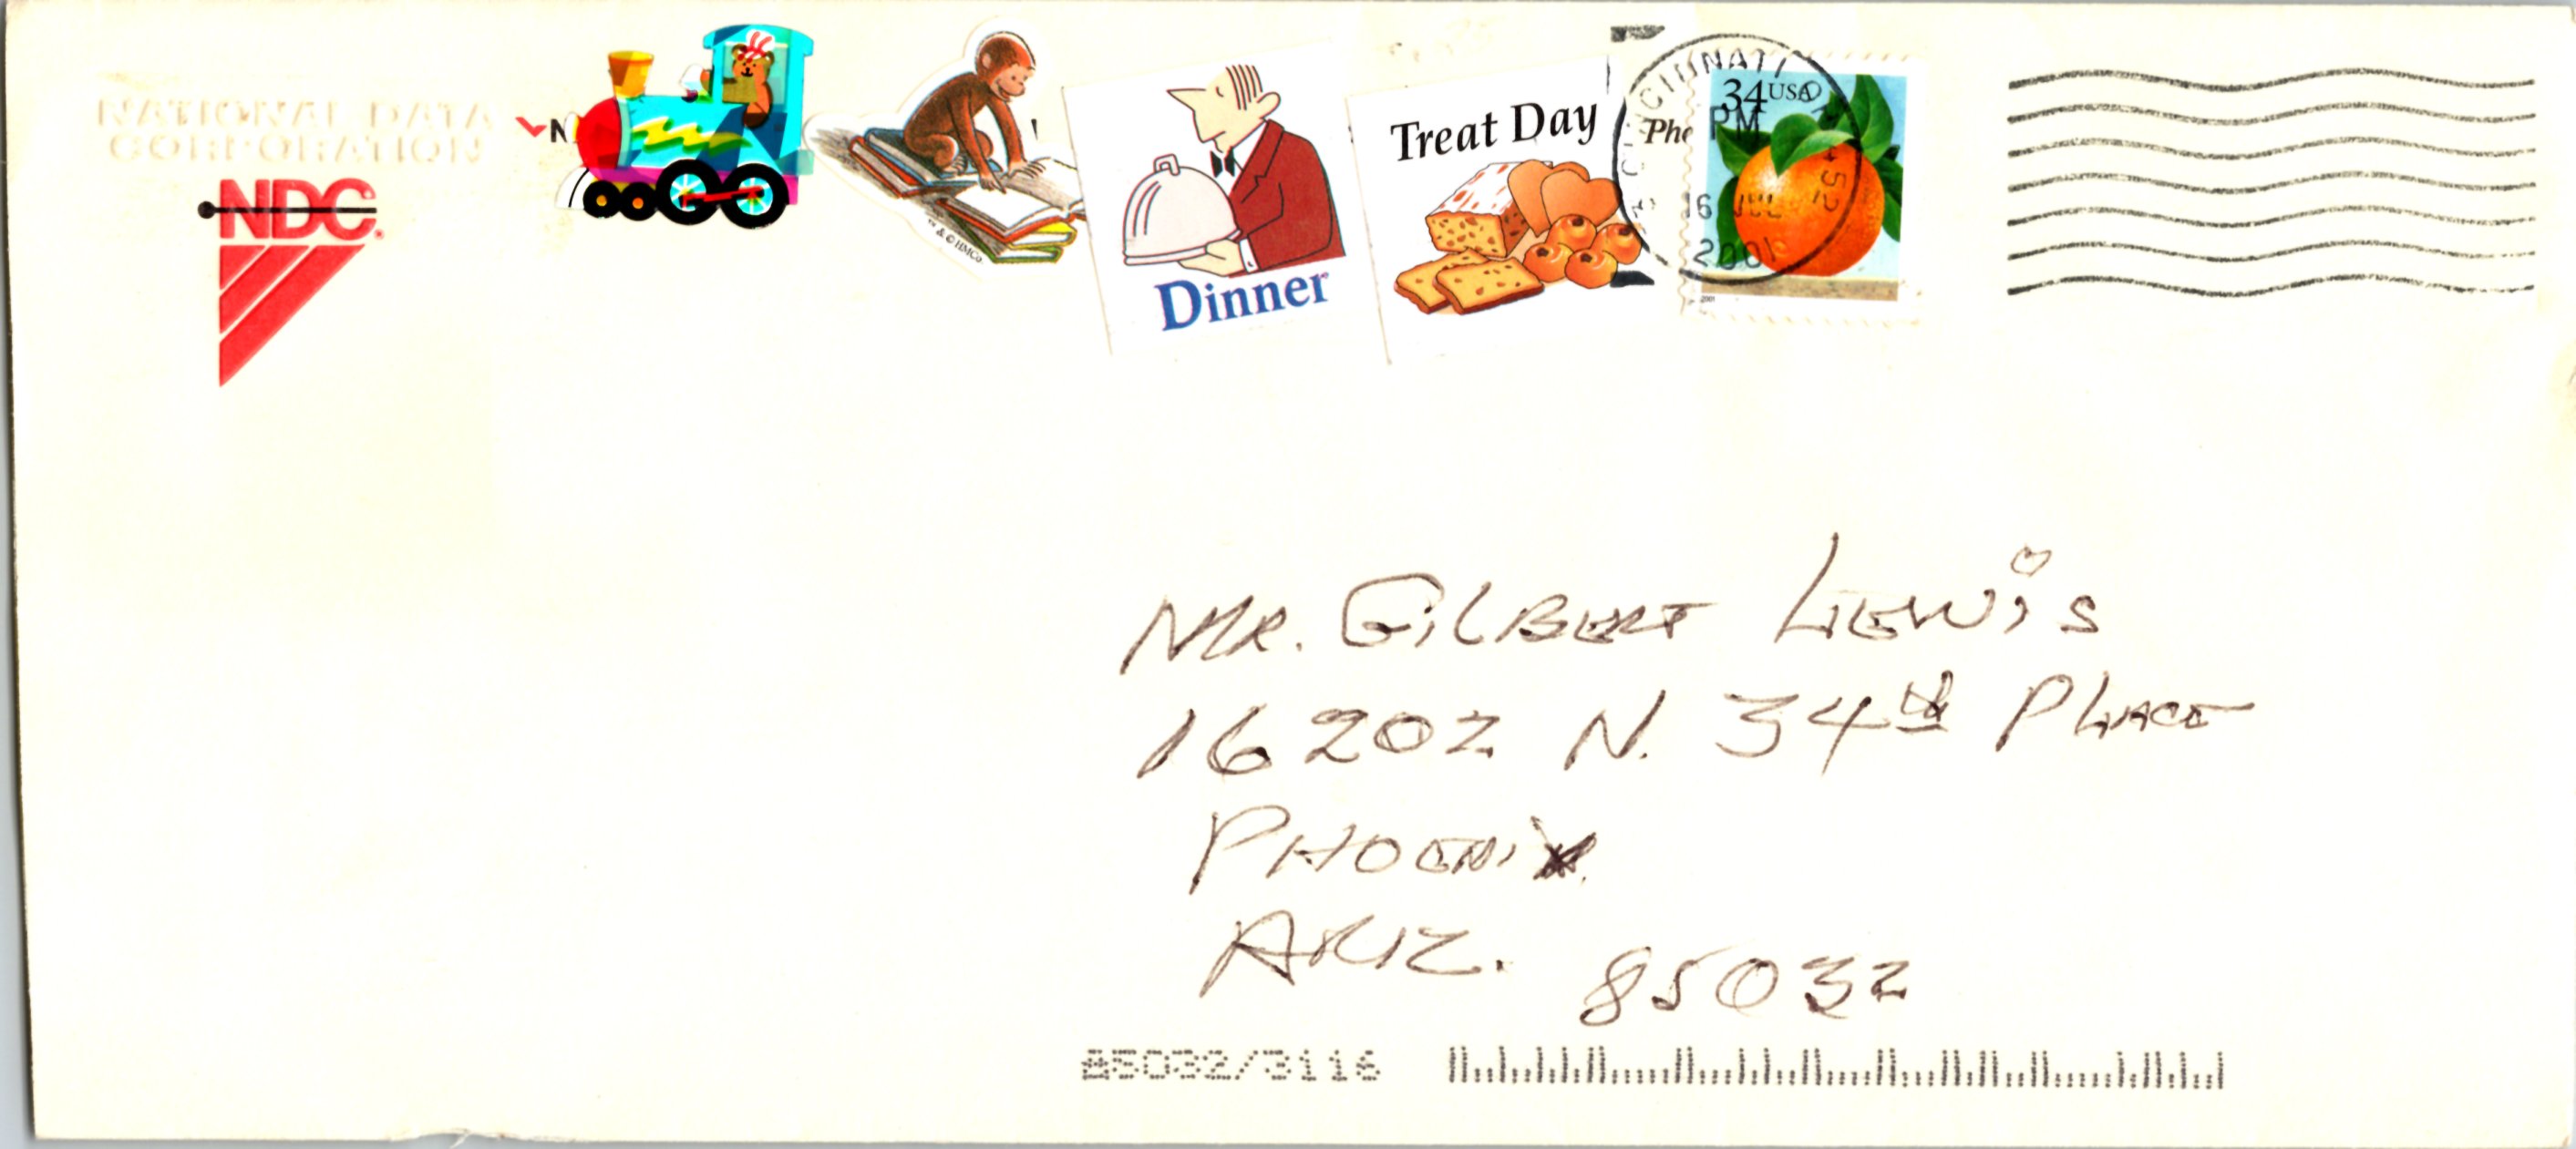 NATIONAL DATA
CORPORATION
NDC®
N
™ & © HMCo.
Dinner
Treat Day
CINCINNATI
PM
16 JUL
2001
452
34USA
2001
MR. GILBERT LEWIS
16202 N. 34th PLACE
PHOENIX
ARIZ. 85032
85032/3116